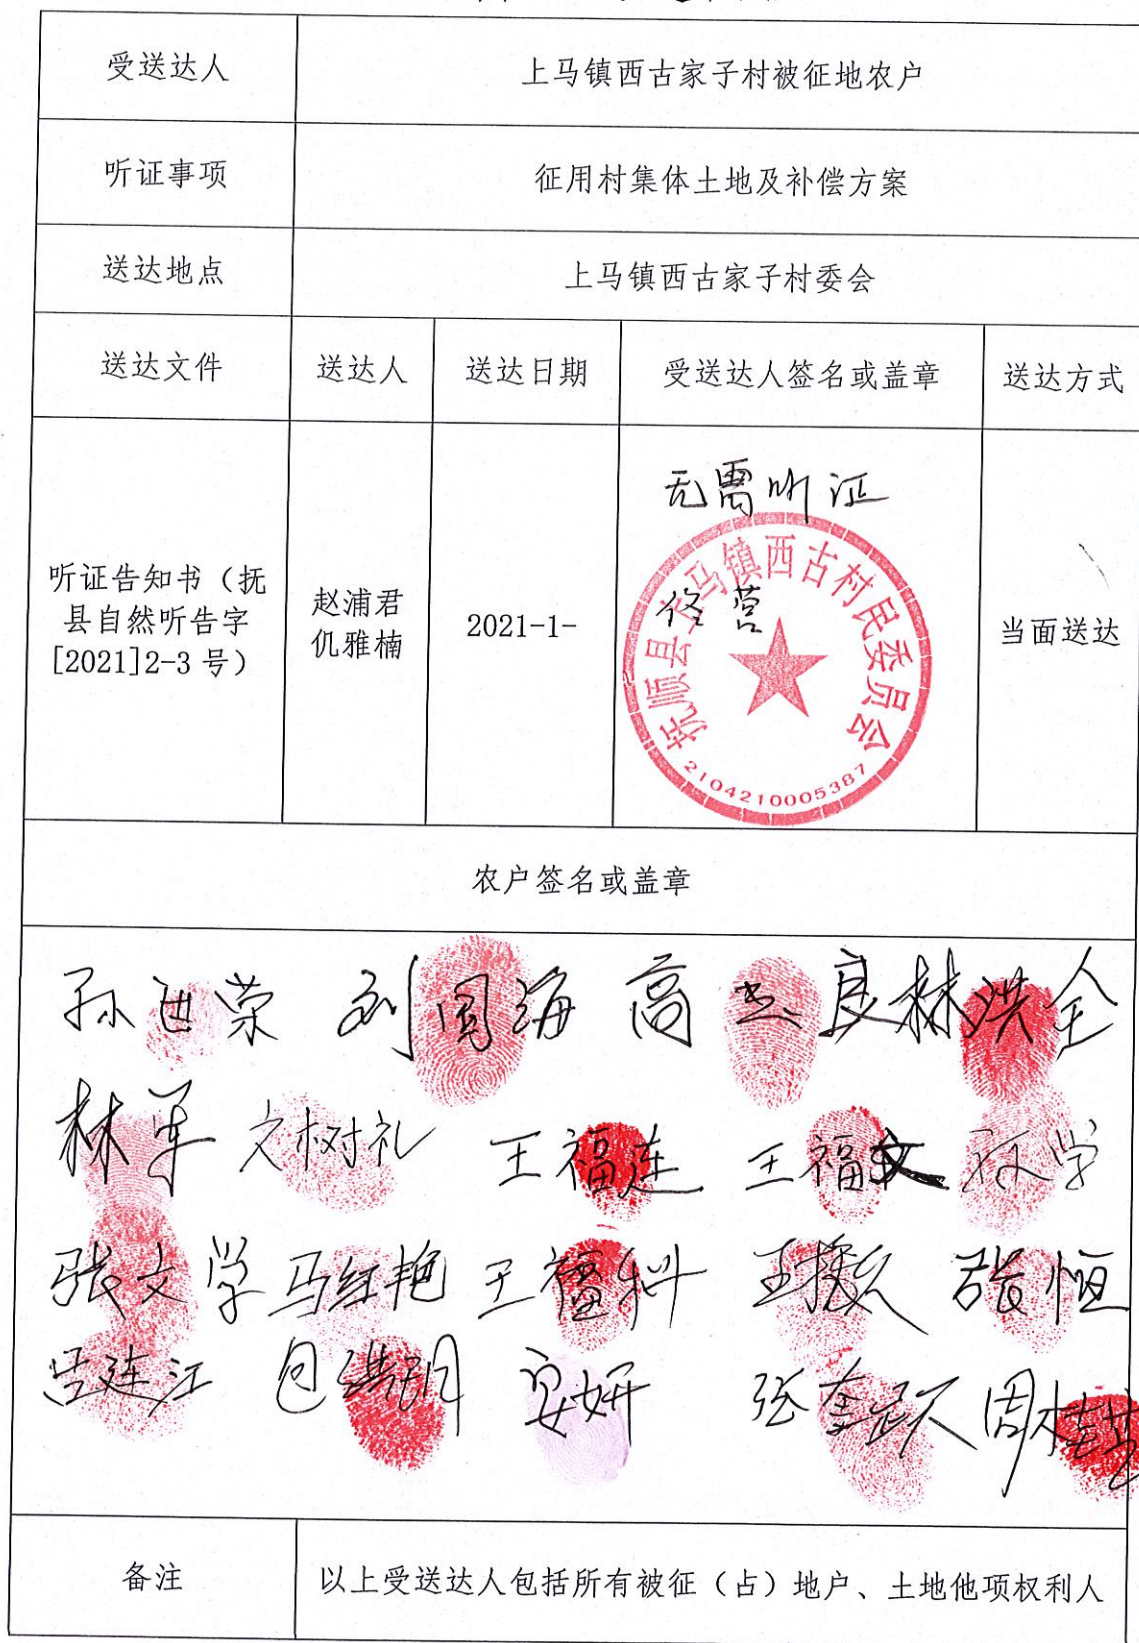 受送达人 上马镇西古家子村被征地农户
听证事项 征用村集体土地及补偿方案
送达地点 上马镇西古家子村委会
送达文件 送达人 送达日期 受送达人签名或盖章 送达方式
无需听证
听证告知书（抚
县自然听告字
[2021]2-3 号）
赵浦君
仉雅楠
2021-1-
抚顺县上马镇西古村民委员会
2104210005387
当面送达
农户签名或盖章
刘国海 高 良 林洪全
林军 文树礼 王福连 王福文 孙学
张文学 马红艳 王福科 张恒
吕连江 安妍 周桂
备注 以上受送达人包括所有被征（占）地户、土地他项权利人